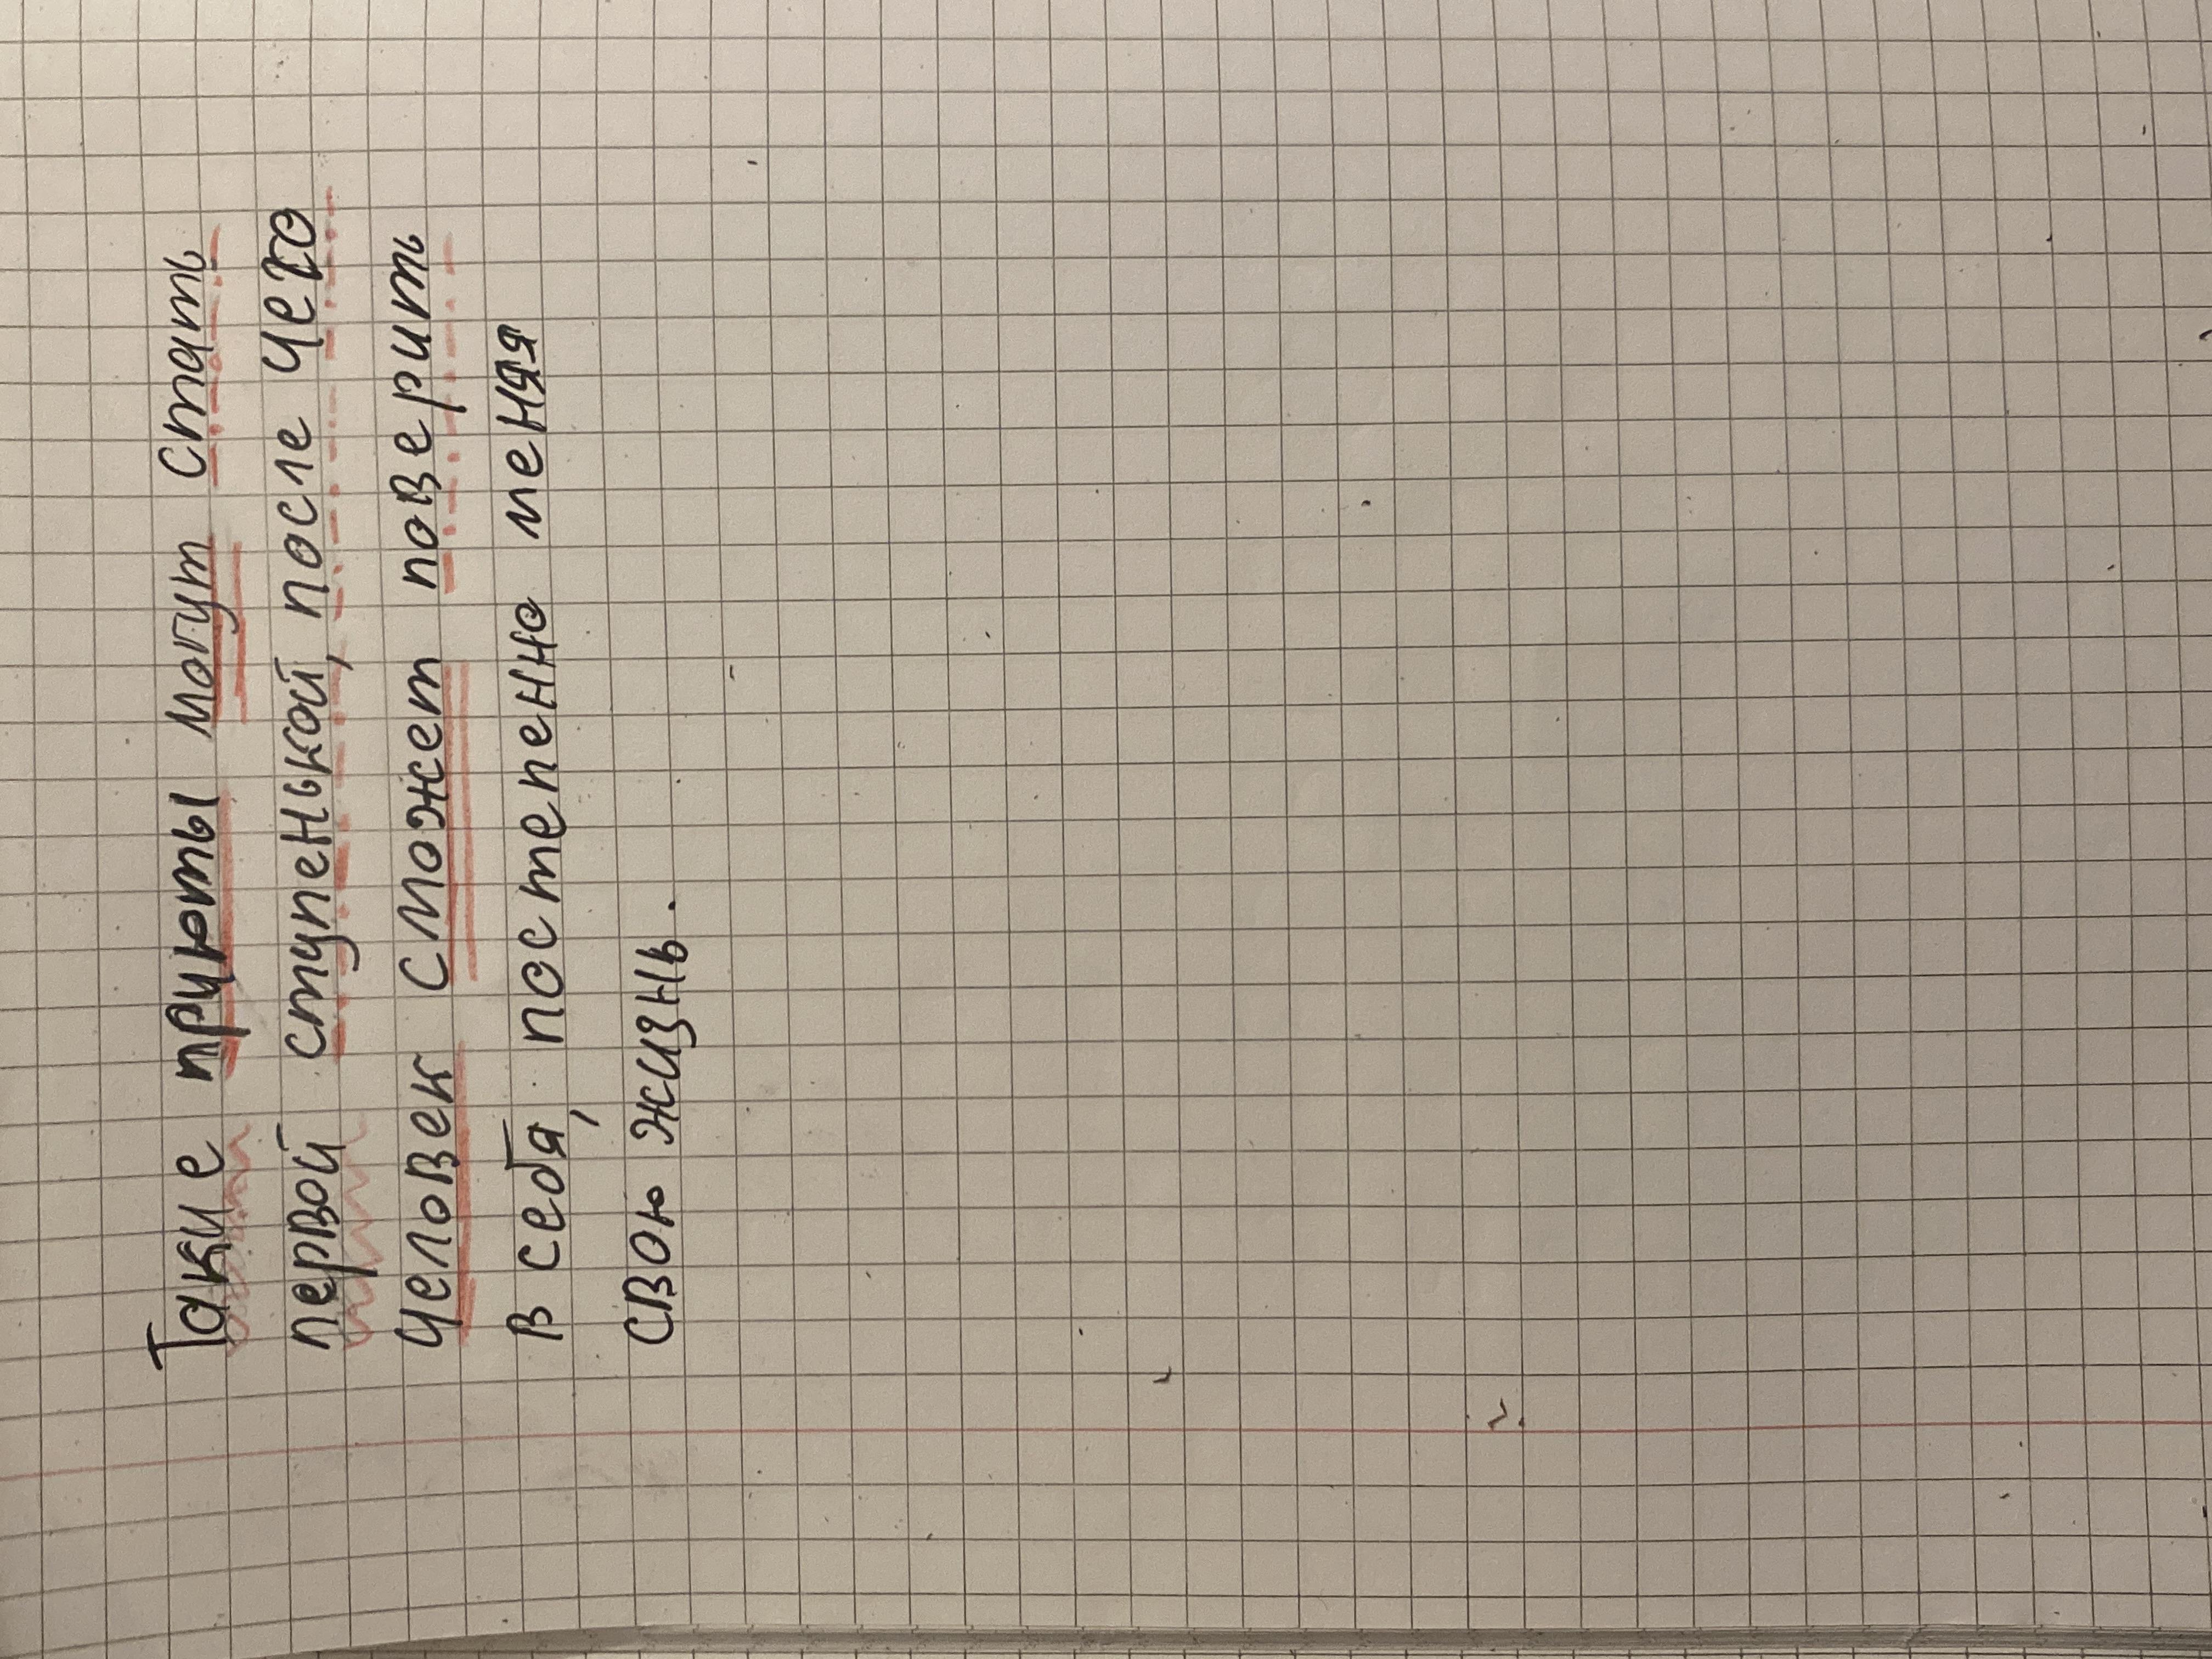 Такие приюты могут стать
первой ступенькой, после чего
человек сможет поверить
в себя, постепенно меняя
свою жизнь.